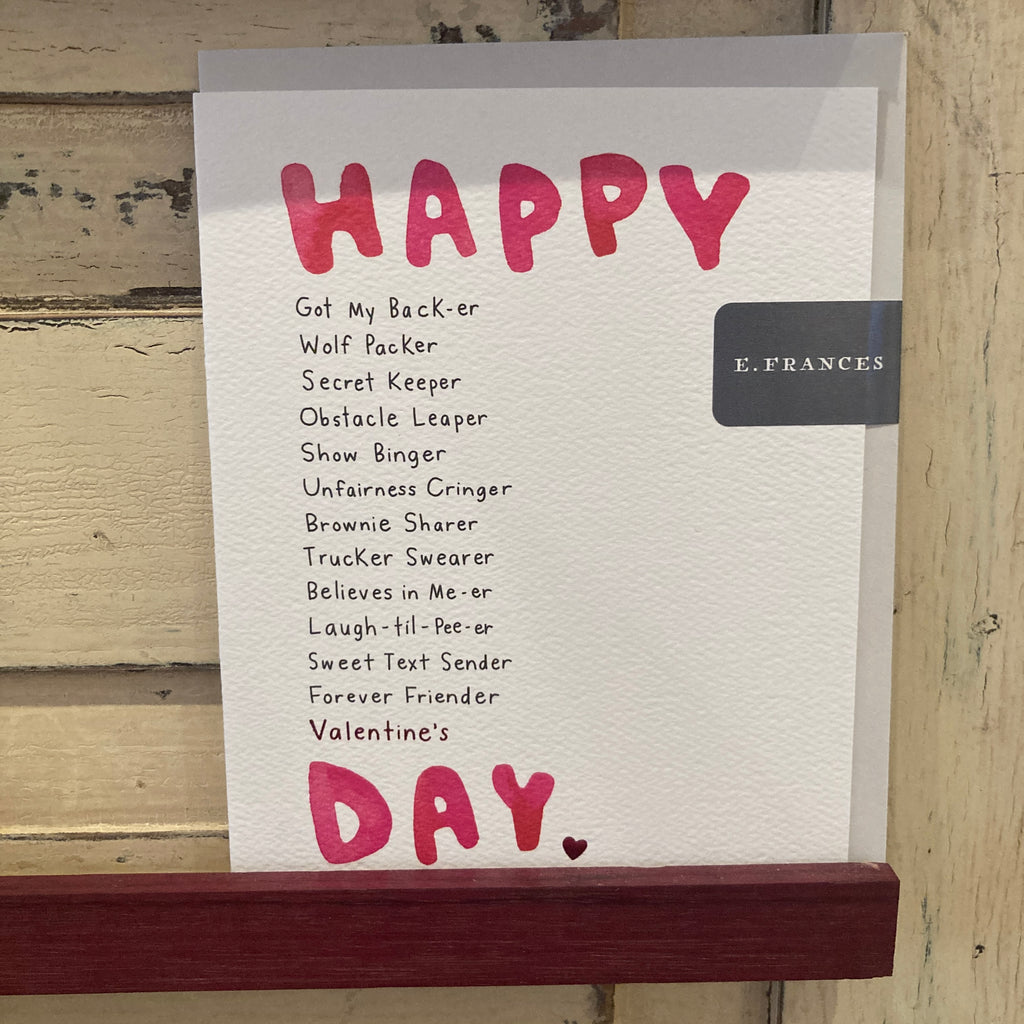 HAPPY
Got My Back-er
Wolf Packer
Secret Keeper
Obstacle Leaper
Show Binger
Unfairness Cringer
Brownie Sharer
Trucker Swearer
Believes in Me-er
Laugh-til-Pee-er
Sweet Text Sender
Forever Friender
Valentine's
DAY.
E.FRANCES